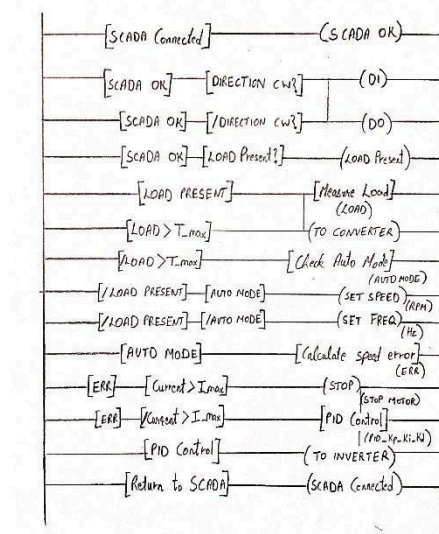 [SCADA Connected] (SCADA OK)
[SCADA OK] [DIRECTION CW?] (D1)
[SCADA OK] [/DIRECTION CW?] (D0)
[SCADA OK] [LOAD Present?] (LOAD Present)
[LOAD PRESENT] [Measure Load]
(LOAD)
[LOAD > T_max] (TO CONVERTER)
[/LOAD > T_max] [Check Auto Mode]
(AUTO MODE)
[/LOAD PRESENT] [AUTO MODE] (SET SPEED)
(RPM)
[/LOAD PRESENT] [/AUTO MODE] (SET FREQ)
(Hz)
[AUTO MODE] [Calculate speed error]
(ERR)
[ERR] [Current > I_max] (STOP)
(STOP MOTOR)
[ERR] [/Current > I_max] [PID Control]
(PID_Kp_Ki_Kd)
[PID Control] (TO INVERTER)
[Return to SCADA] (SCADA Connected)